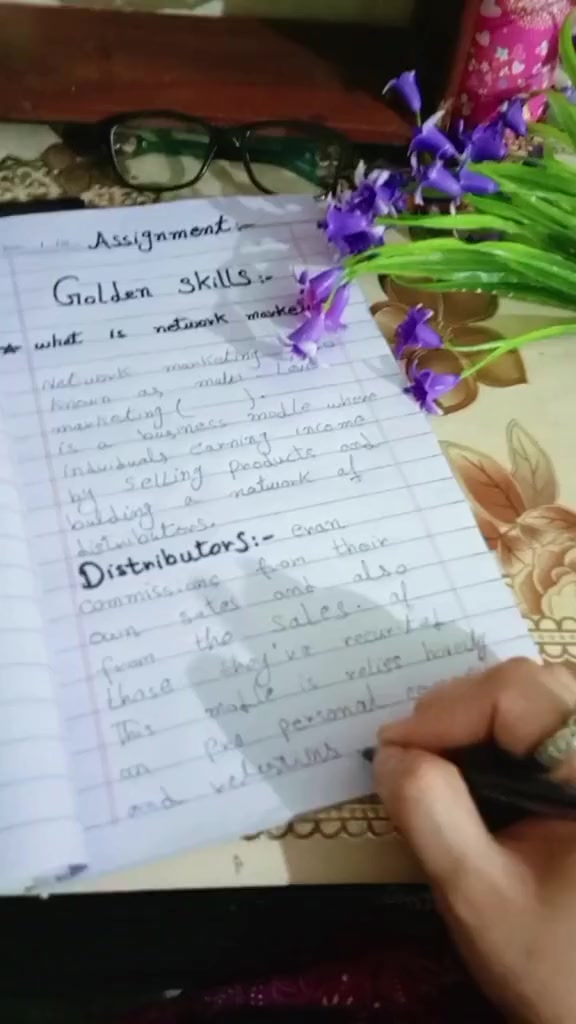 Assignment:-
Golden skills:-
* what is network marke
Network marketing
known as multi- Leve
marketing ( ).
is a business modle where
Individuals earning income
by selling products and
building a network of
distributors.
Distributors:- eran
commissions from their
own sales and also
from the sales. of
those they've recurited
This modle is relies heavly
on pro personal
and relestins